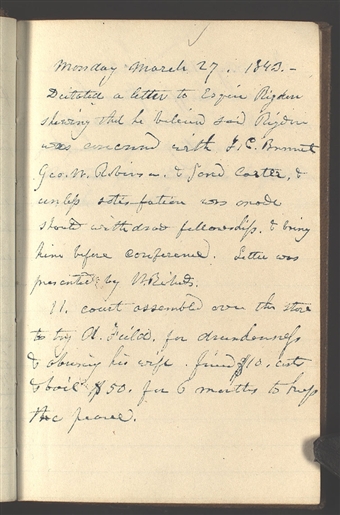 Monday March 27. 1843.-
Dictated a letter to Esqin Rigdon
shewing that he believed said Rigdon
was concerned with J. C. Bennett
Geo. W. Robinson. & Jared Carter. &
unless satisfaction was made
should withdraw fellowship. & bring
him before conference. Letter was
presented by W. Richds.
11. court assembled over the store
to try A. Field. for drunkenness
& abusing his wife. fined $10. costs
& bail $50. for 6 months to keep
the peace.